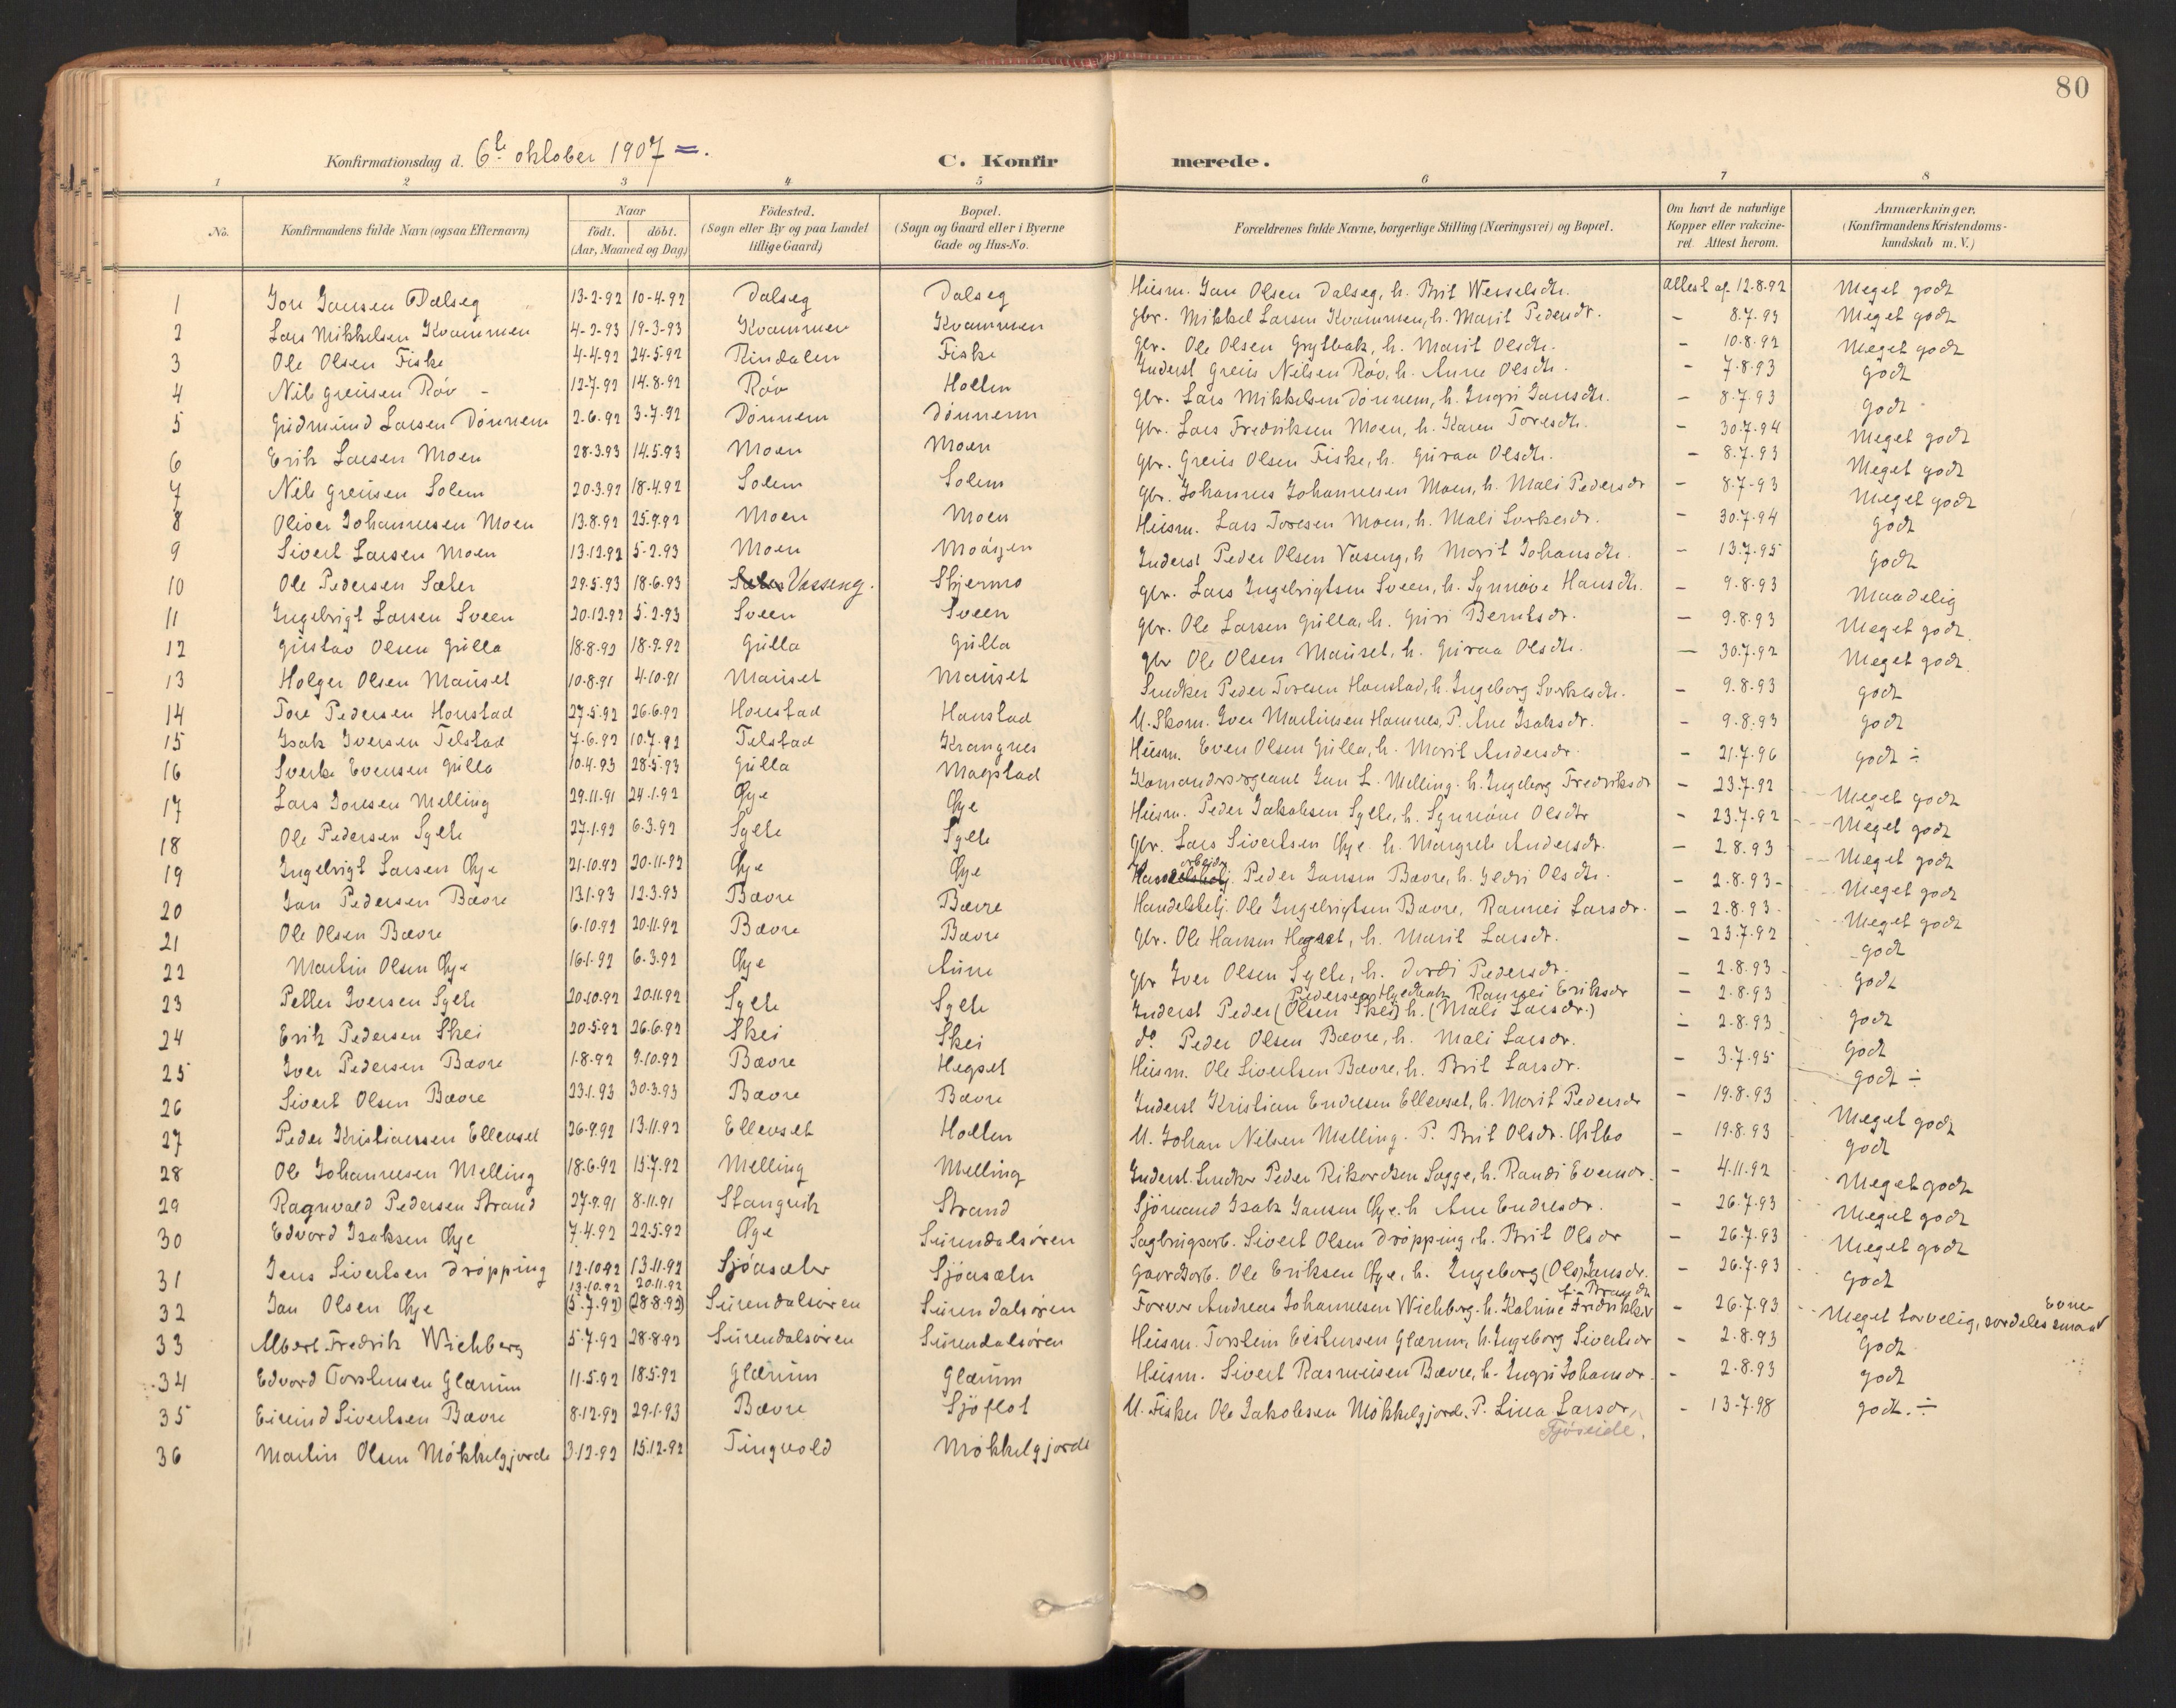 80
Konfirmationsdag d. 6te oktober 1907 =. C. Konfirmerede.
1 2 3 4 5 6 7 8
No. Konfirmandens fulde Navn (ogsaa Efternavn) Naar født. døbt. (Aar, Maaned og Dag) Födested. (Sogn eller By og paa Landet tillige Gaard) Bopæl. (Sogn og Gaard eller i Byerne Gade og Hus-No. Forældrenes fulde Navne, borgerlige Stilling (Næringsvei) og Bopæl. Om havt de naturlige Kopper eller vakcineret. Attest herom. Anmærkninger. (Konfirmandens Kristendomskundskab m. V.)
1 Jon Jansen Dalseg 13-2-92 10-4-92 Dalseg Dalseg Husm. Jan Olsen Dalseg, h. Brit Wesselsdtr. Attest af 12-8-92 Meget godt
2 Lars Mikkelsen Kvammen 4-2-93 19-3-93 Kvammen Kvammen gbr. Mikkel Larsen Kvammen, h. Marit Pedersdr. - 8.7.93 Meget godt
3 Ole Olsen Fiske 4-4-92 24-5-92 Rindalen Fiske gbr. Ole Olsen Grytbak, h. Marit Olsdtr. - 10.8.92 Meget godt
4 Nils Greusen Röv 12-7-92 14.8.92 Röv Holten Inderst Greus Nilsen Röv, h. Anne Olsdtr. - 7-8.93 godt
5 Gudmund Larsen Dönnem 2-6.92 3-7-92 Dönnem Dönnem gbr. Lars Mikkelsen Dönnem, h. Ingri Jansdtr. - 8.7.93 godt
6 Erik Larsen Moen 28-3.93 14.5.93 Moen Moen gbr. Lars Fredriksen Moen, h. Karen Toresdtr. - 30.7.94 Meget godt
7 Nils Greusen Solem 20.3.92 18-4.92 Solem Solem gbr. Greus Olsen Fiske, h. Guraa Olsdtr. - 8.7.93 Meget godt
8 Oliver Johannesen Moen 13.8.92 25.9.92 Moen Moen gbr. Johannes Johannesen Moen, h. Mali Pedersdr - 8.7-93 Meget godt
9 Sivert Larsen Moen 13.12.92 5-2.93 Moen Moåsen Husm. Lars Toresen Moen, h. Mali Sverkesdr. - 30.7.94 godt
10 Ole Pedersen Sæter 29.5.93 18-6.93 Vasseng. Skjermo Inderst Peder Olsen Vaseng, h Marit Johansdtr. - 13.7.95 godt
11 Ingebrigt Larsen Sveen 20.12.92 5.2.93 Sveen Sveen gbr. Lars Ingebrigtsen Sveen, h. Synnöve Hansdtr. - 9.8.93 Maadelig
12 Gustav Olsen Gulla 18-8-92 18-9-92 Gulla Gulla gbr. Ole Larsen Gulla, h. Guri Berntsdr. - 9.8.93 Meget godt
13 Holger Olsen Mauset 10-8.91 4-10.91 Mauset Mauset gbr Ole Olsen Mauset, h. Guraa Olsdtr. - 30.7.92 Meget godt.
14 Tore Pedersen Honstad 27-5.92 26-6.92 Honstad Honstad Snedker Peder Toresen Honstad, h. Ingeborg Sverkesdtr. - 9.8.93 godt
15 Isak Iversen Telstad 7-6.92 10.7.92 Telstad Krangnes U. Skom. Iver Martinsen Hamnes, P. Ane Isaksdr. - 9.8.93 godt
16 Sverke Evensen Gulla 10.4.93 28.5.93 Gulla Mogstad Husm. Even Olsen Gulla, h. Marit Andersdr. - 21.7.96 godt ÷
17 Lars Jonsen Melling 29.11.91 24.1.92 Öye Öye Komandersergeant Jon L. Melling. h. Ingeborg Fredriksdr - 23.7.92 Meget godt
18 Ole Pedersen Sylte 27.1.92 6.3.92 Sylte Sylte Husm. Peder Jakobsen Sylte, h. Synnöve Olsdtr - 23.7.92 Meget godt
19 Ingebrigt Larsen Öye 21-10.92 20-11-92 Öye Öye gbr. Lars Sivertsen Öye h. Margrete Andersdr. - 2.8.93 Meget godt
20 Jan Pedersen Bævre 13.1.93 12.3.93 Bævre Bævre arbeider Peder Jansen Bævre, h. Gjertri Olsdtr. - 2.8.93- Meget godt
21 Ole Olsen Bævre 6-10.92 20.11.92 Bævre Bævre Handelsbetj. Ole Ingebrigtsen Bævre, Rannei Larsdr. - 2.8.93 Meget godt
22 Martin Olsen Öye 16-1-92 6-3.92 Öye Aune gbr. Ole Hansen Hegset, h. Marit Larsdr. - 23.7.92 godt
23 Petter Iversen Sylte 20.10.92 20.11.92 Sylte Sylte gbr Iver Olsen Sylte, h. Dordi Pedersdr. - 2.8.93 godt
24 Erik Pedersen Skei 20-5.92 26-6.92 Skei Skei Inderst Peder (Olsen Skei) h. (Mali Larsdr.) Rannei Eriksdr - 2.8.93 godt
25 Iver Pedersen Bævre 1-8-92 9.10.92 Bævre Hegset do Peder Olsen Bævre, h. Mali Larsdr. - 2.8.93 godt
26 Sivert Olsen Bævre 23.1.93 30-3.93 Bævre Bævre Husm. Ole Sivertsen Bævre, h. Brit Larsdr. - 3.7.95 godt ÷
27 Peder Kristiansen Ellevset 26-9.92 13.11.92 Ellevset Holten Inderst Kristian Endresen Ellevset, h. Marit Pedersdr - 19.8.93 Meget godt
28 Ole Johannesen Melling 18.6.92 15.7.92 Melling Melling U. Johan Nilsen Melling. P. Brit Olsdr. - 19.8.93 godt
29 Ragnvald Pedersen Strand 27-9.91 8-11.91 Stangvik Strand Inderst. Snedker Peder Rikardsen Sagge, h. Randi Evensdr. - 4.11.92 Meget godt
30 Edvard Isaksen Öye 7-4.92 22.5.92 Öye Surendalsören Sjömand Isak Jansen Öye. h Ane Endresdr. - 26.7.93 Meget godt
31 Jens Sivertsen Dröpping 12-10.92 13.11.92 Sjöasæter Sjöasæter Sagbrugsarb. Sivert Olsen Dröpping, h. Brit Olsdr - 26.7.93 Meget godt
32 Jan Olsen Öye 13-10.92 20.11.92 (5.7.92) (28-8.92) Surendalsören Surendalsören Gaardsarb. Ole Eriksen Öye, h. Ingeborg (Ols) Jansdr. - 26.7.93 godt
33 Albert Fredrik Wichberg 5-7.92 28-8.92 Surendalsören Surendalsören Farver Andreas Johannesen Wichberg. h. Katrine Fredrikke - 26.7.93 Meget tarvelig, særdeles smaa Evne
34 Edvard Torstensen Glærum 11-5.92 18.5.92 Glærum Glærum Husm. Torstein Eistensen Glærum, h. Ingeborg Sivertsdr - 2.8.93 godt
35 Eivind Sivertsen Bævre 8-12.92 29.1.93 Bævre Sjöflot Husm. Sivert Rasmusen Bævre, h. Ingri Johansdr. - 2.8.93 godt
36 Martin Olsen Mökkelgjerde 3-12-92 15.12.92 Tingvold Mökkelgjerde U. Fisker Ole Jakobsen Mökkelgjerde. P. Lina Larsdr, - 13-7.98 godt. ÷